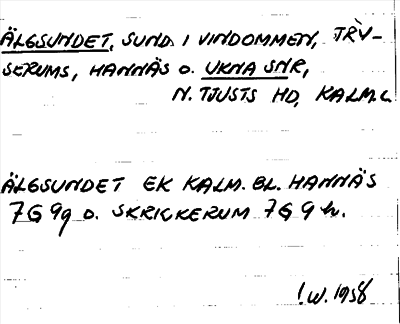 ÄLGSUNDET, SUND I VINDOMMEN, TRY-
SERUMS, HANNÄS O. UKNA SNR,
N. TJUSTS HD, KALM. L.
ÄLGSUNDET EK KALM. BL. HANNÄS
7G 9g O. SKRICKERUM 7G 9 h.
I.W. 1958